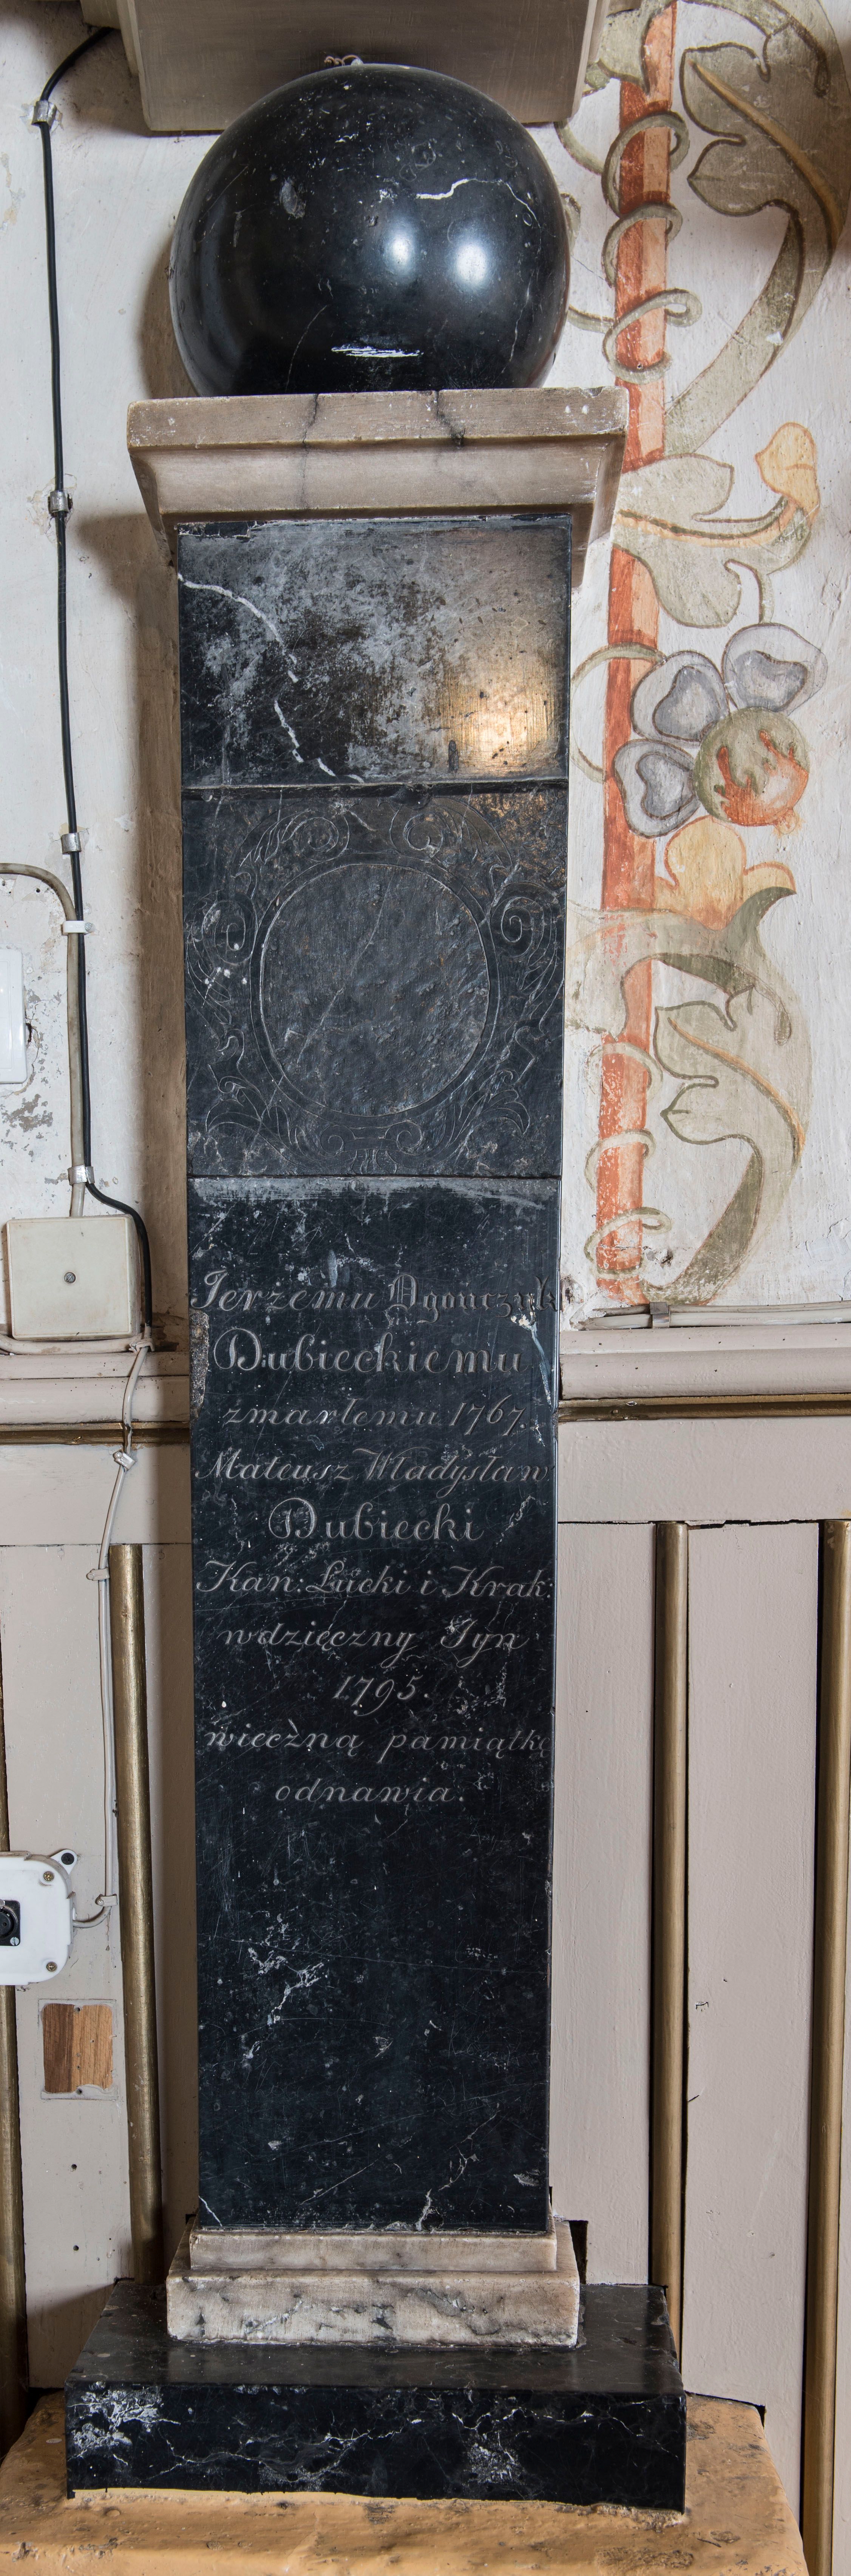 Jerzemu Ogończyk
Dubieckiemu
zmarłemu 1767.
Mateusz Władysław
Dubiecki
Kan: Łucki i Krak:
wdzięczny Syn
1795.
wieczną pamiątkę
odnawia.